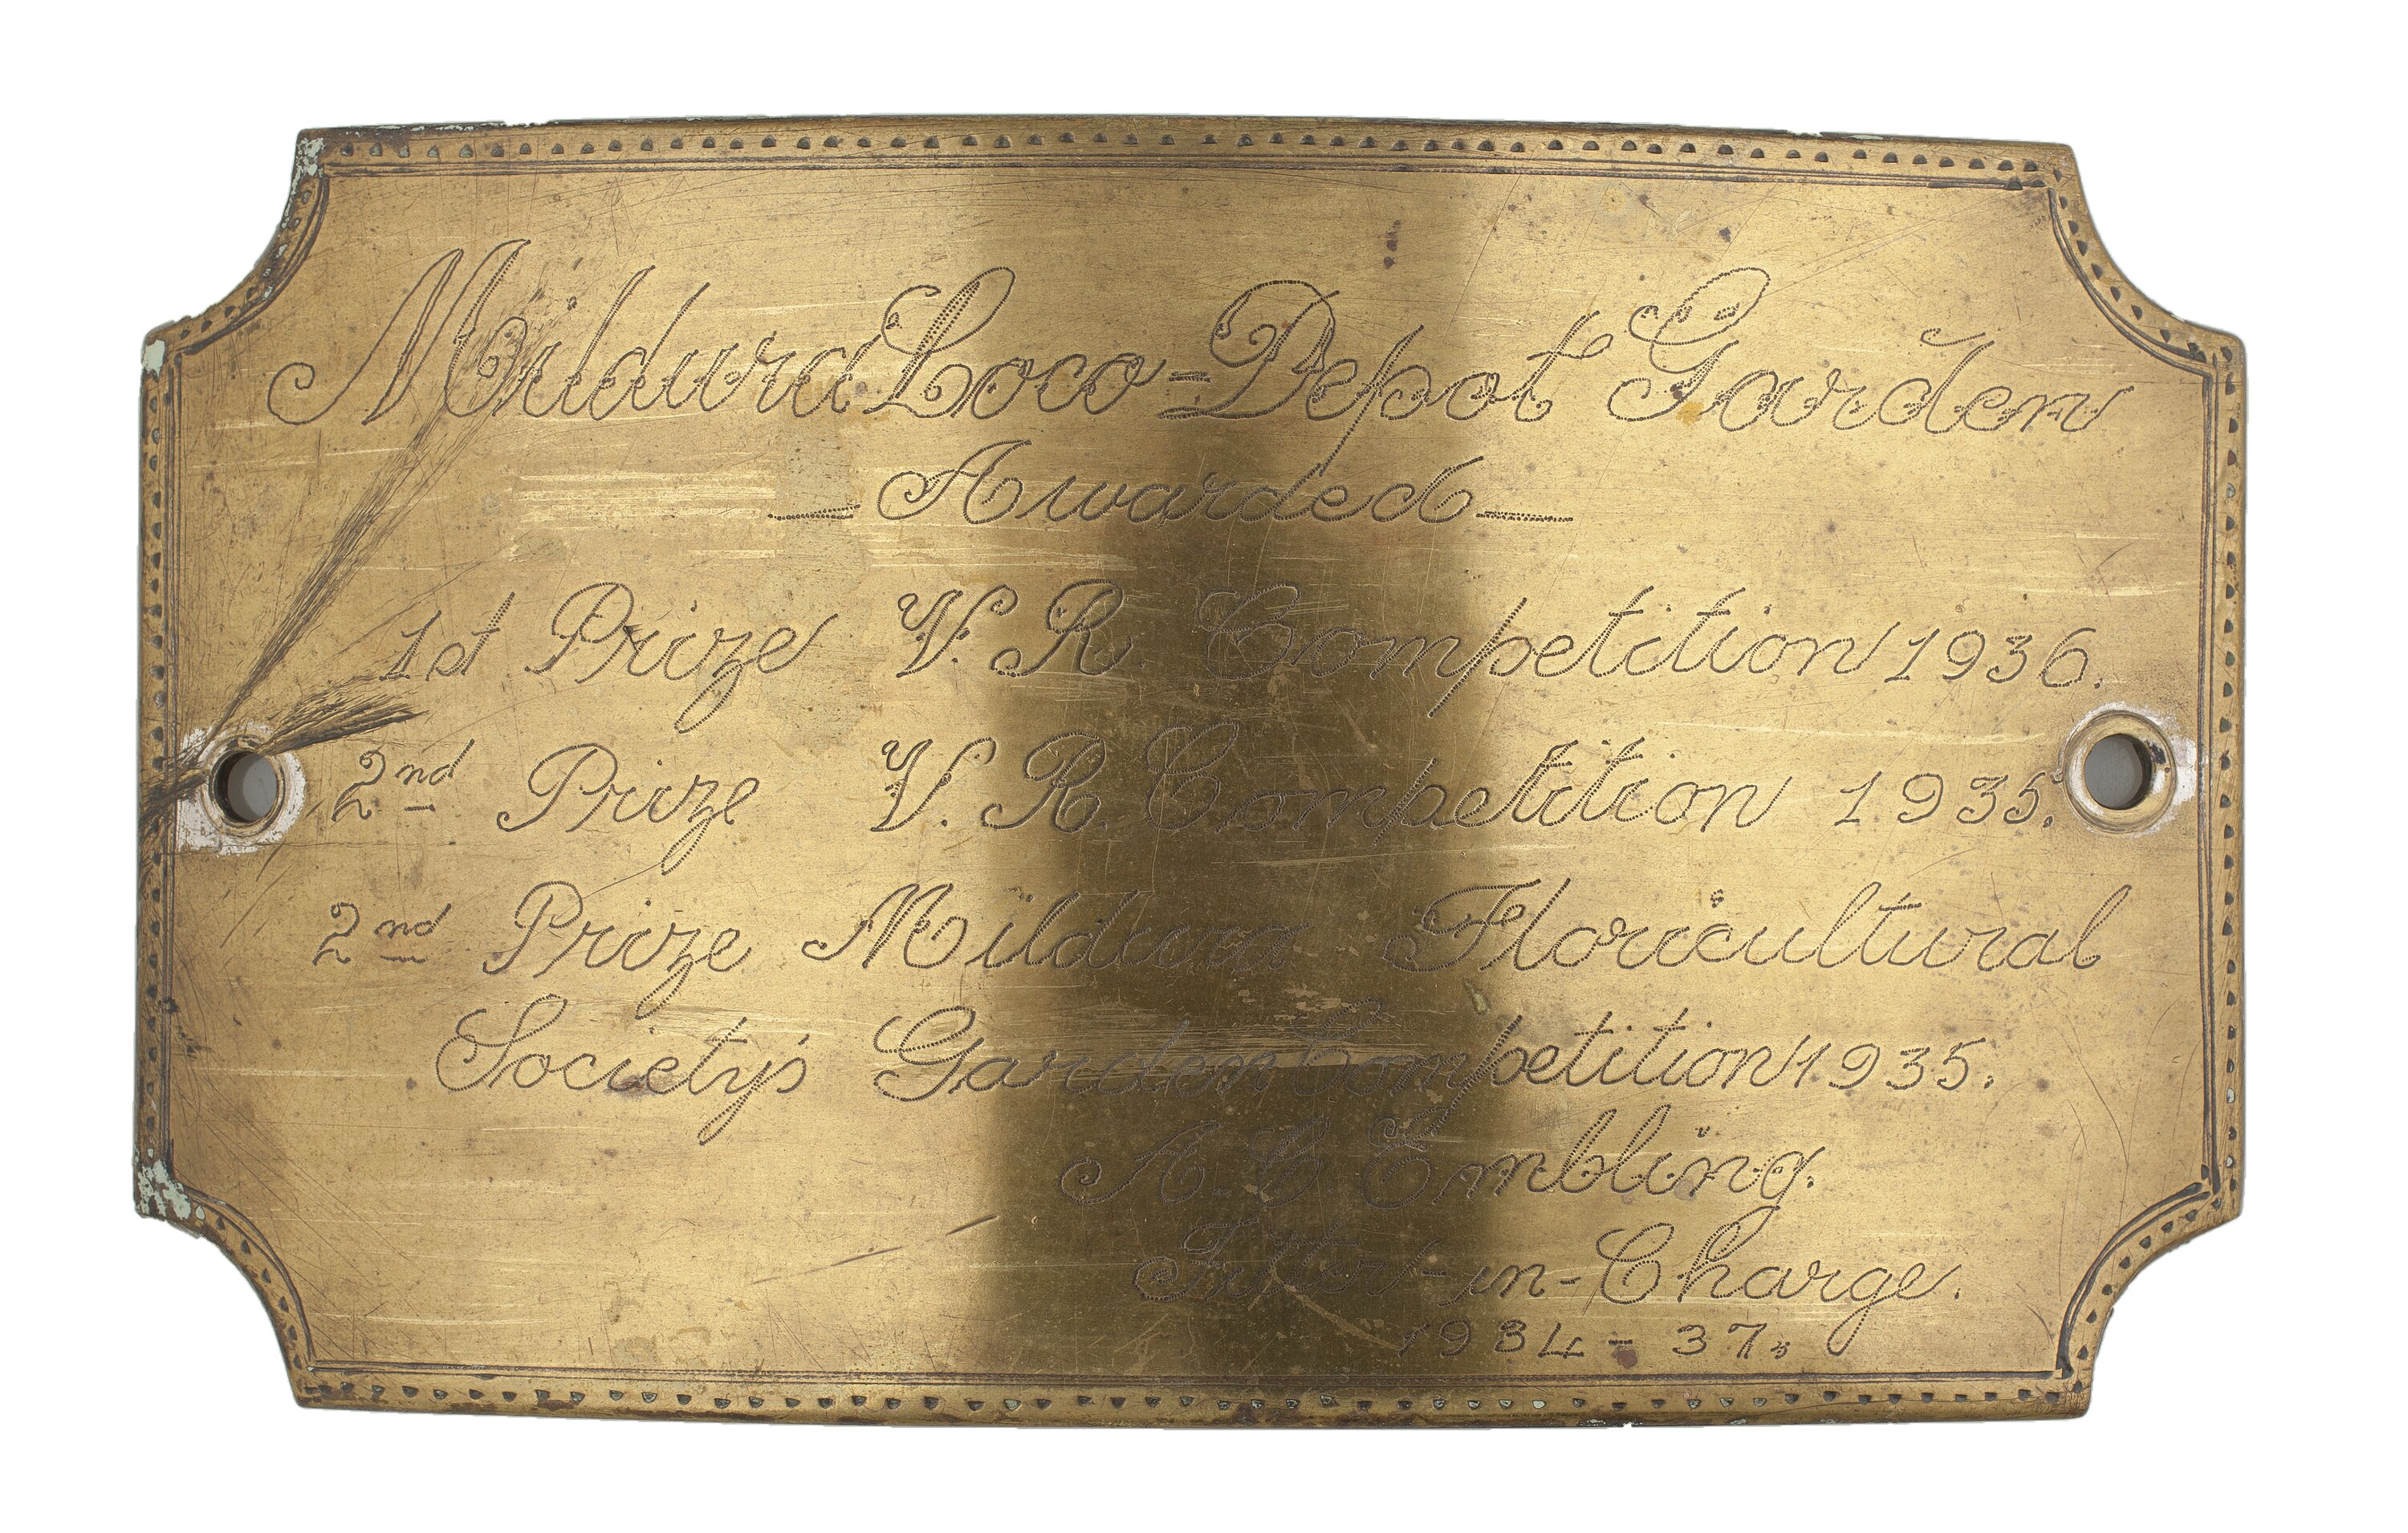 Mildura Loco-Depot Garden
- Awarded -
1st Prize V. R Competition 1936.
2nd Prize V. R. Competition 1935.
2nd Prize Mildura Floricultural
Society's Garden Competition 1935.
A. C Embling.
Fitter-in-Charge.
1934 - 37.